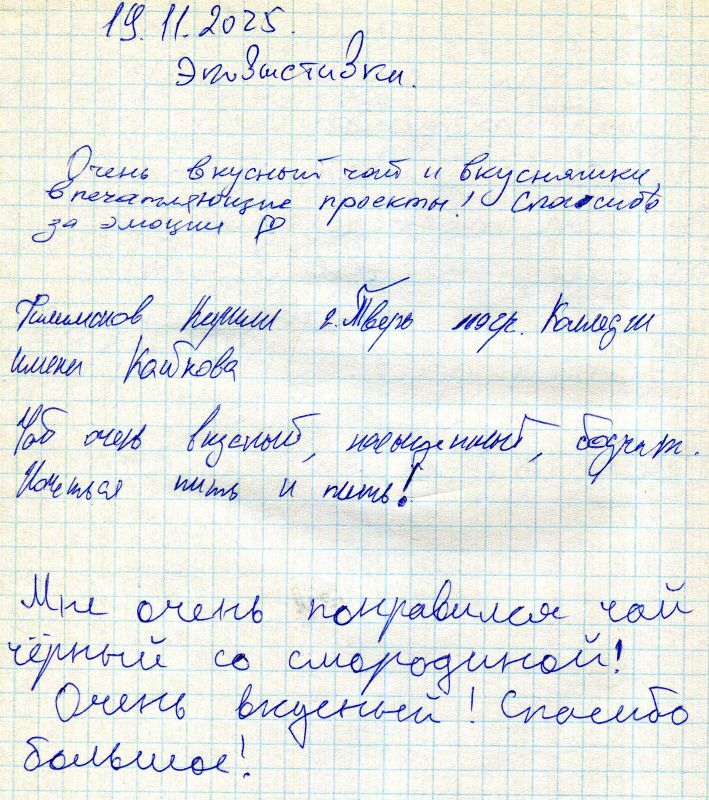 19.11.2025.
Эковыставки.
Очень вкусный чай и вкусняшки,
впечатляющие проекты! Спасибо
за эмоции
Филимонов г. Тверь Колледж
имени Кайкова
Чай очень вкусный, насыщенный, бодрит.
Хочеться пить и пить!
Мне очень понравился чай
чёрный со смородиной!
Очень вкусный! Спасибо
большое!